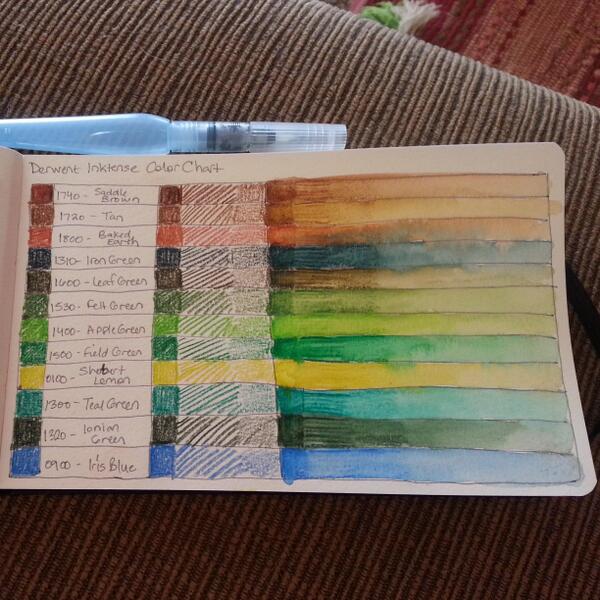 Derwent Inktense Color Chart
1740 - Saddle
Brown
1720 - Tan
1800 - Baked
Earth
1310 - Iron Green
1600 - Leaf Green
1530 - Felt Green
1400 - Apple Green
1500 - Field Green
0100 - Sherbert
Lemon
1300 - Teal Green
1320 - Ionian
Green
0900 - Iris Blue